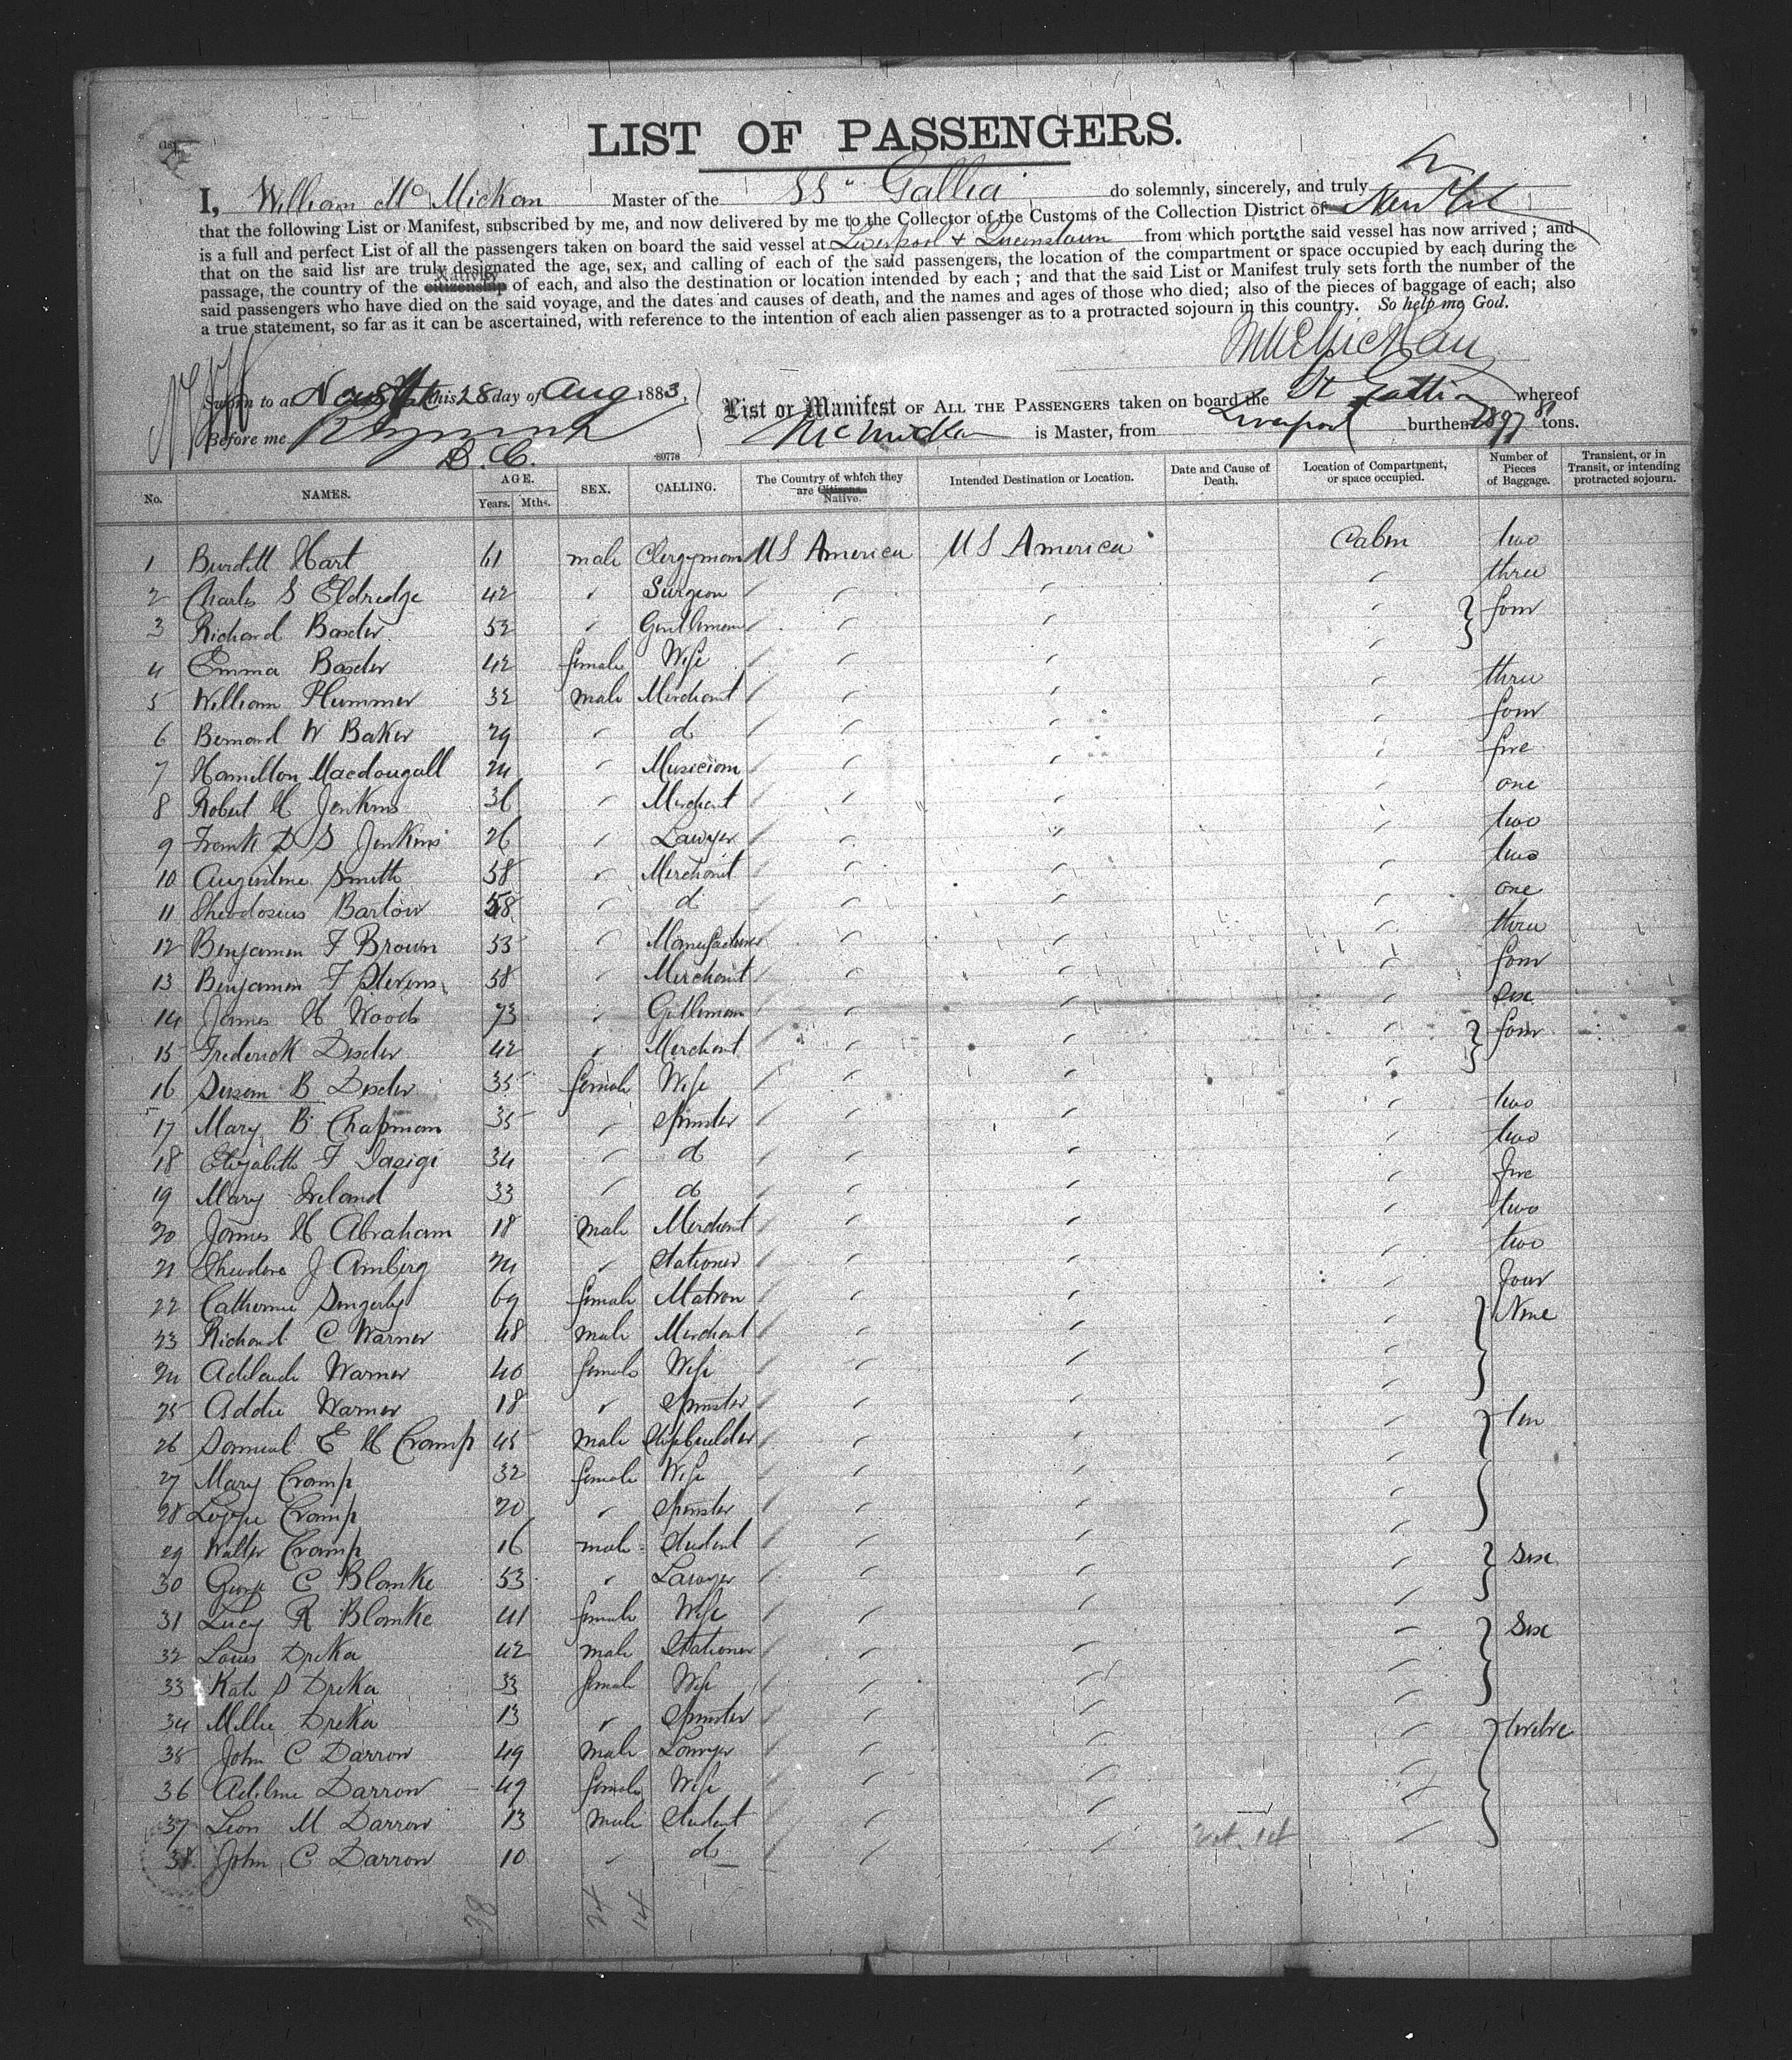 LIST OF PASSENGERS.
I, William McMickan Master of the SS "Gallia" do solemnly, sincerely, and truly
that the following List or Manifest, subscribed by me, and now delivered by me to the Collector of the Customs of the Collection District of New York
is a full and perfect List of all the passengers taken on board the said vessel at Liverpool & Queenstown from which ports the said vessel has now arrived; and
that on the said list are truly designated the age, sex, and calling of each of the said passengers, the location of the compartment or space occupied by each during the
Nativity
passage, the country of the citizenship of each, and also the destination or location intended by each; and that the said List or Manifest truly sets forth the number of the
said passengers who have died on the said voyage, and the dates and causes of death, and the names and ages of those who died; also of the pieces of baggage of each; also
a true statement, so far as it can be ascertained, with reference to the intention of each alien passenger as to a protracted sojourn in this country. So help me God.
Sworn to at New York this 28 day of Aug 1883,
Before me
D.C.
List or Manifest OF ALL THE PASSENGERS taken on board the Gallia whereof
McMickan is Master, from Liverpool burthen tons.
80778
No. NAMES. AGE. Years. Mths. SEX. CALLING. The Country of which they are Citizens. Native. Intended Destination or Location. Date and Cause of Death. Location of Compartment, or space occupied. Number of Pieces of Baggage. Transient, or in Transit, or intending protracted sojourn.
1 Burdett Hart 61 male Clergyman US America US America Cabin two
2 Charles S Eldredge 42 " Surgeon three
3 Richard Baxter 52 " Gentleman four
4 Emma Baxter 42 female Wife
5 William Plummer 32 male Merchant three
6 Bernard W Baker 29 " do four
7 Hamilton Macdougall 24 " Musician five
8 Robert H Jenkins 36 " Merchant one
9 Frank D S Jenkins 26 " Lawyer two
10 Augustine Smith 58 " Merchant two
11 Theodosius Bartow 58 " do one
12 Benjamin F Brown 53 " Manufacturer three
13 Benjamin F Stevens 58 " Merchant four
14 James H Woods 73 " Gentleman Six
15 Frederick Dexter 42 " Merchant four
16 Susan B Dexter 35 female Wife
17 Mary B Chapman 35 " Spinster two
18 Elizabeth F Iasigi 34 " do two
19 Mary Ireland 33 " do five
20 James H Abraham 18 male Merchant two
21 Theodore J Amberg 24 " Stationer two
22 Catherine Singerly 69 female Matron four
23 Richard C Warner 48 male Merchant Nine
24 Adelaide Warner 40 female Wife
25 Addie Warner 18 " Spinster
26 Samuel E H Cramp 45 male Shipbuilder ten
27 Mary Cramp 32 female Wife
28 Cramp 20 " Spinster
29 Walter Cramp 16 male Student
30 George C Blanke 53 " Lawyer Six
31 Lucy R Blanke 41 female Wife
32 Louis Dreka 42 male Stationer Six
33 Kate S Dreka 33 female Wife
34 Millie Dreka 13 " Spinster
35 John C Darrow 49 male Lawyer twelve
36 Adeline Darrow 49 female Wife
37 Leon M Darrow 13 male Student
38 John C Darrow 10 " do
38 24 14